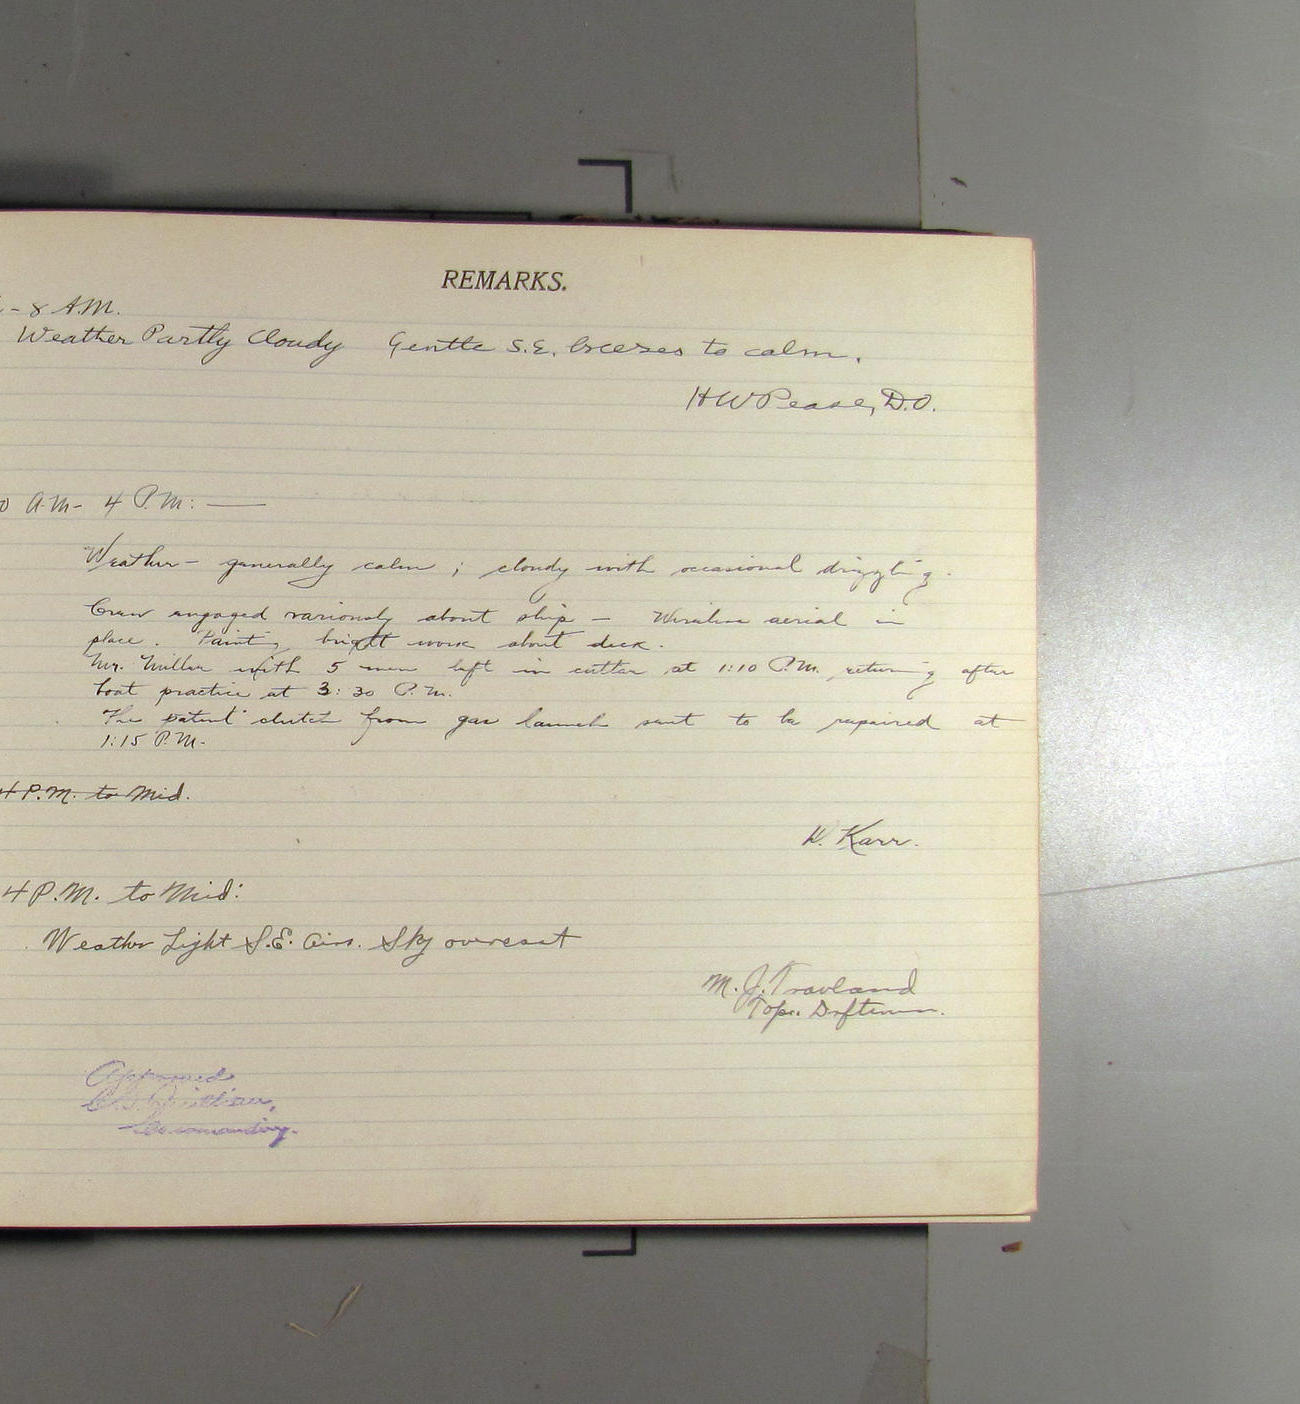 REMARKS.
- 8 A.M.
Weather Partly Cloudy Gentle S.E. breezes to calm.
H W Pease, D.O.
A.M- 4 P.M:
Weather- generally calm ; cloudy with occasional drizzling.
Crew engaged variously about ship - Wireless aerial in
place. Painting bright work about deck.
Mr. Miller with 5 men left in cutter at 1:10 P.M. returning after
boat practice at 3:30 P.M.
The patent clutch from gas launch sent to be repaired at
1:15 P.M-
4 P.M. to Mid.
H. Karr.
4 P.M. to Mid:
Weather Light S.E. airs. Sky overcast
M. J. Travland
Topo. Drftsmn.
Approved
Commanding.